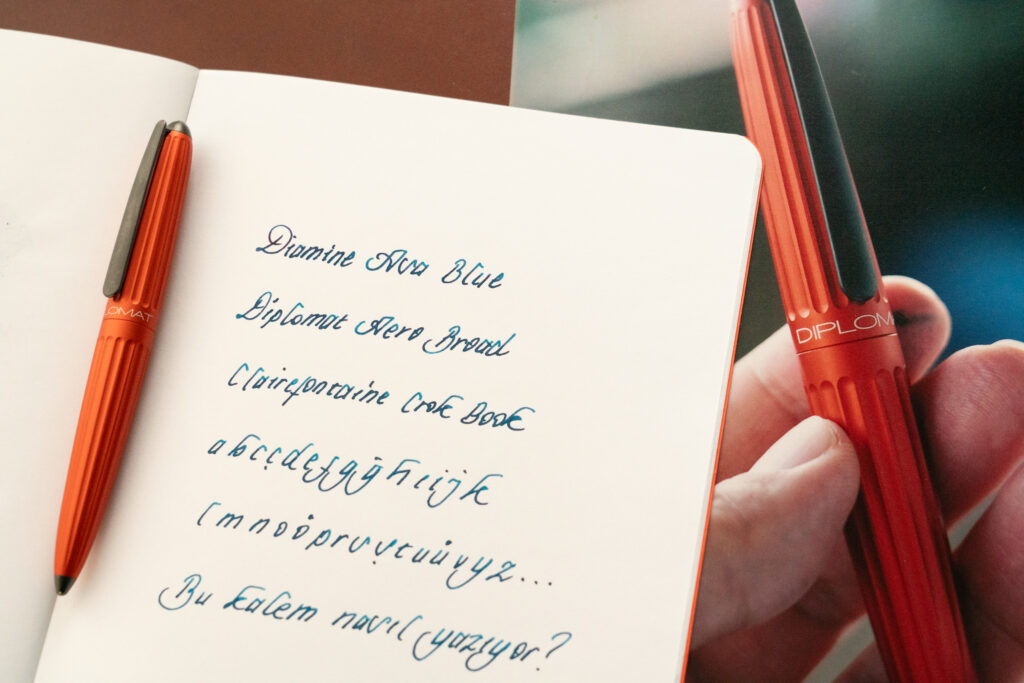 Diamine Asa Blue
Diplomat Aero Broad
Clairefontaine Crok Book
a b c ç d e f g ğ h ı i j k
l m n o ö p r s ş t u ü v y z...
Bu kalem nasıl yazıyor?
LOMAT
DIPLOM